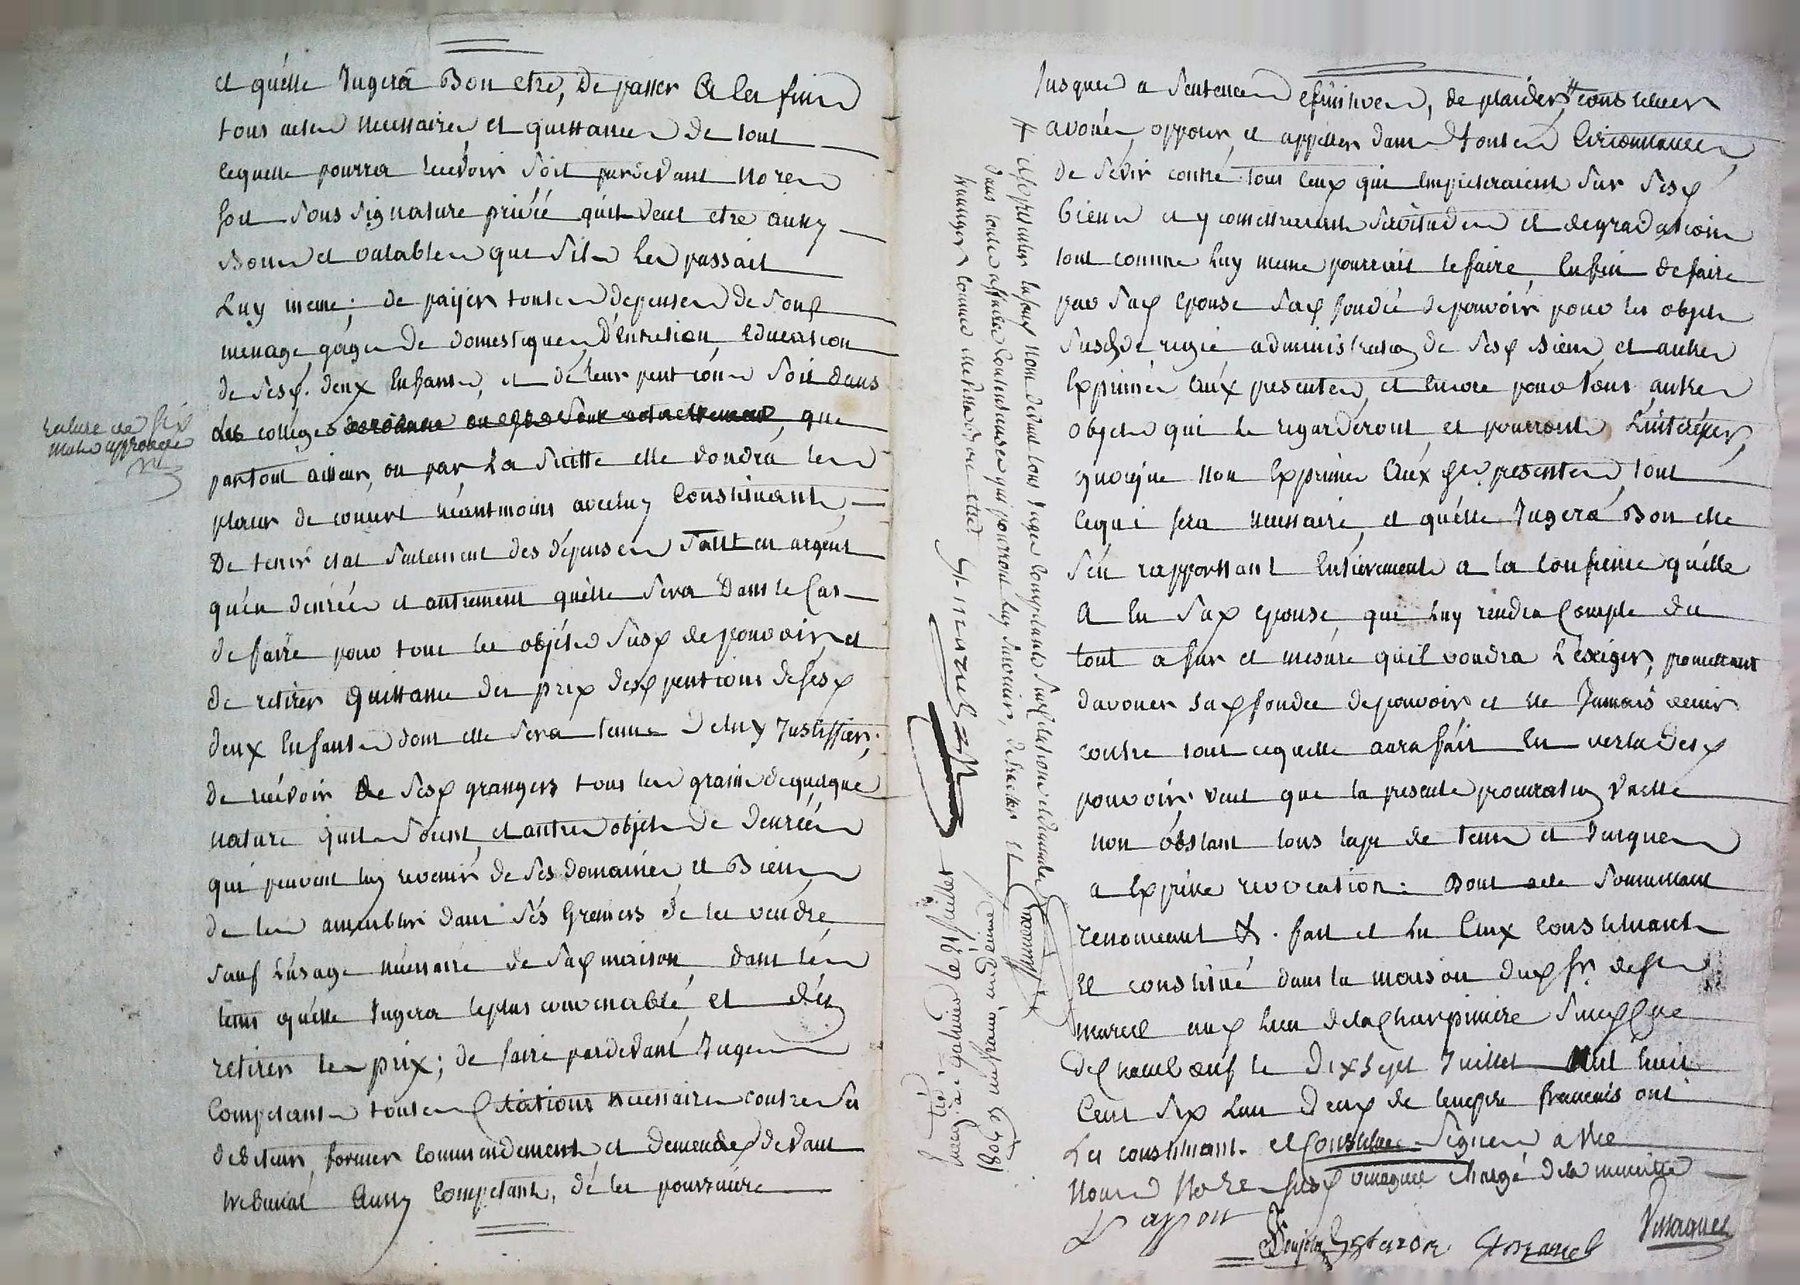 et quélle Jugerà Bon etre, De passer à les fins
tous actes necessaires et quittances de tout
cequelle pourra recevoir soit pardevant Nores
soit sous signature privée quil veut etre aussy
Bons et valables que sil les passait
Luy meme; de paÿer toutes depenses de son
menage, gages de domestiques, D'Entretien, Education
de ses deux Enfants, et de leur pentions soit dans
Les colleges que
partout ailleurs, ou par La suitte elle voudra les
placer de concert néantmoins avecluy Constituant,
De tenir etat seulement des dépenses Soit en argent
qu'en denrées et autrement quélle sera Dans le Cas
de faire pour tous les objéts de pouvoir et
de retirer quittance des prix desd pentions de ses
deux Enfants dont elle sera tenue Deluy Justiffier;
de récévoir de ses grangers tous les grains de quelque
nature quils soient, et autres objets de Denrées
qui peuvent luy revenir de ses domaines et Biens
de les dans sés Greniers de les vendre
sauf Lusage nécessaire de sa maison, dans lés
tems quélle Jugera leplus convenable, et d'én
retirer les prix; de faire pardevant Juges
Competants toutes Citations necessaires contre ses
debiteurs, former Commendements et Demendes devant
tribunal Aussy Competant, dé les poursuivre
rature de six
mots approuvée
Jusques a Sentences definitives, de plaider, constituer
avoués, opposer, et appeller dans toutes Circonstances
de sévir contre tous ceux qui Empieteraient sur ses
biens et y comettraient servitudes et degradations
tout comme Luy meme pourrait lefaire Enfin de faire
par sa epouse sa fondée de pouvoir pour les objets
de regie administration de ses Biens et autres
Exprimés Eux presentes, et Encore pour tous autres
objets qui le regarderont, et pourront L'intéresser,
quoique non Exprimés Eux presentes, tout
cequi sera necessaire, et quélle Jugera Bon etre
s'en rapportant Entierement a la confience quélle
a en sa epouse, qui Luy rendra Compte du
tout a fur et mesure qu'il voudra L'éxiger, promettant
d'avouer sa fondée depouvoir et ne Jamais venir
contre tout cequelle aura fait En vertu desd
pouvoir veut que la presente procuration vaille
non óbstant tous laps de tems et Jusques
a Expresse revocation. Dont acte soumettant
renonceant &. fait et Lu Aux Constituant
et constitué dans la maison dud sr. de St
marcel aud Lieu de la Charpiniere
de le Dix sept Juillet Mil huit
Cent six L'an Deux de lempire francais ont
Les constituant et Constituée signés avec
Nous Nores vinagues chargé dela minutte
St marcel Vinagues
# et se presenter En son Nom devant tous Juges Competants sur Citations et demandes
dans toutes affaires Contentieuses qui pourront luy survenir, de traiter et
transiger comme
Enregistré a le 21 Juillet
1806